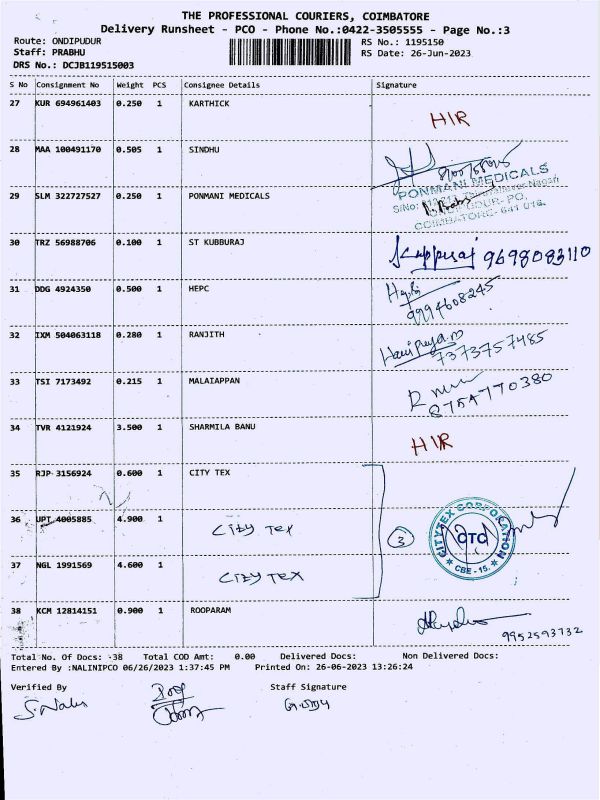 THE PROFESSIONAL COURIERS, COIMBATORE
Delivery Runsheet - PCO - Phone No.:0422-3505555 - Page No.:3
Route: ONDIPUDUR RS No.: 1195150
Staff: PRABHU RS Date: 26-Jun-2023
DRS No.: DCJB119515003
S No Consignment No Weight PCS Consignee Details Signature
27 KUR 694961403 0.250 1 KARTHICK HIR
28 MAA 100491170 0.505 1 SINDHU
29 SLM 322727527 0.250 1 PONMANI MEDICALS PONMANI MEDICALS
COIMBATORE- 641 016.
30 TRZ 56988706 0.100 1 ST KUBBURAJ 9698083110
31 DDG 4924350 0.500 1 HEPC 9994608245
32 IXM 504063118 0.280 1 RANJITH 7373757485
33 TSI 7173492 0.215 1 MALAIAPPAN 8754770380
34 TVR 4121924 3.500 1 SHARMILA BANU HIR
35 RJP 3156924 0.600 1 CITY TEX
36 UPT 4005885 4.900 1 CITY TEX 3 CITYTEX CORPORATION CTC CBE - 15.
37 NGL 1991569 4.600 1 CITY TEX
38 KCM 12814151 0.900 1 ROOPARAM 9952593732
Total No. Of Docs: 38 Total COD Amt: 0.00 Delivered Docs: Non Delivered Docs:
Entered By :NALINIPCO 06/26/2023 1:37:45 PM Printed On: 26-06-2023 13:26:24
Verified By Staff Signature